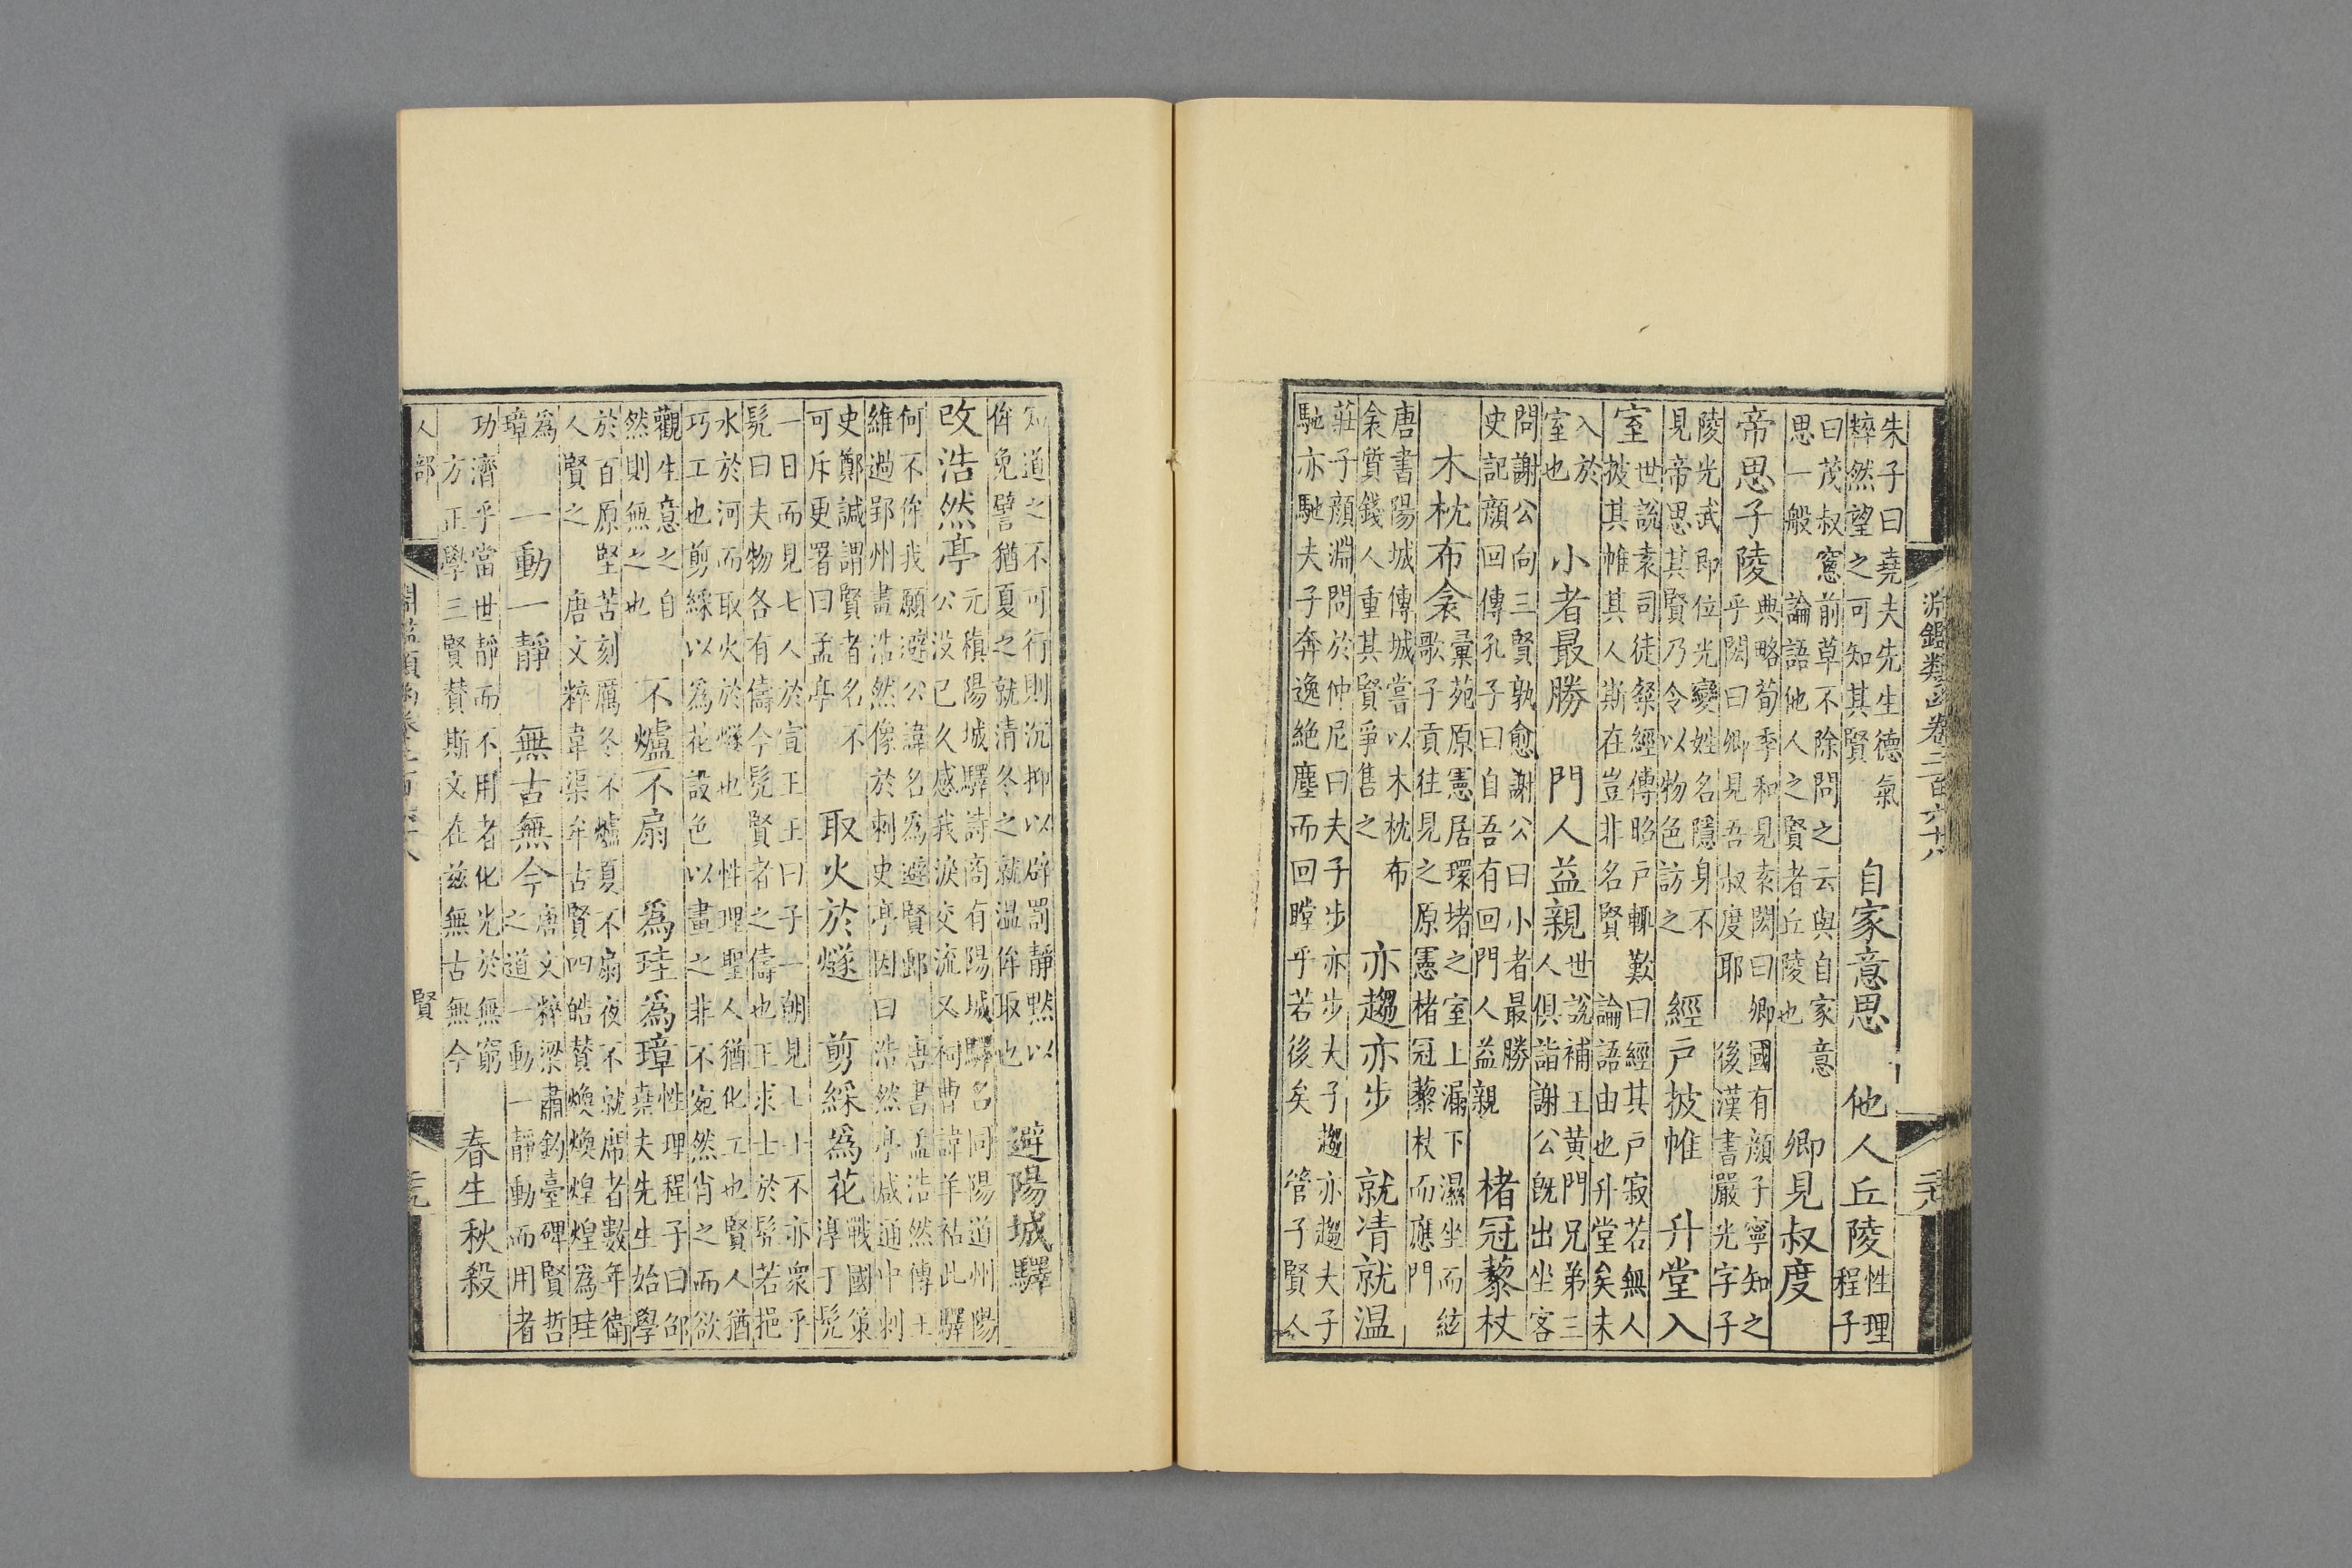 淵鑑類函卷二百六十八
朱子曰堯夫先生德氣
粹然望之可知其賢
自家意思 他人丘陵
性理
程子
曰茂叔窻前草不除問之云與自家意
思一般 論語他人之賢者丘陵也
卿見叔度
帝思子陵
典略荀季和見袁閎曰卿國有顏子寧知之
乎閎曰卿見吾叔度耶 後漢書嚴光字子
陵光武即位光變姓名隱身不
見帝思其賢乃令以物色訪之
經戶披帷 升堂入
室
世說袁司徒粲經傅昭戶輒歎曰經其戶寂若無人
披其帷其人斯在豈非名賢 論語由也升堂矣未
入於
室也
小者最勝 門人益親
世說補王黃門兄弟三
人俱詣謝公旣出坐客
問謝公向三賢孰愈謝公曰小者最勝
史記顏回傳孔子曰自吾有回門人益親
楮冠藜杖
木枕布衾
彙苑原憲居環堵之室上漏下濕坐而絃
歌子貢往見之原憲楮冠藜杖而應門
唐書陽城傳城嘗以木枕布
衾質錢人重其賢爭售之
亦趨亦步 就凊就温
莊子顏淵問於仲尼曰夫子步亦步夫子趨亦趨夫子
馳亦馳夫子奔逸絕塵而回瞠乎若後矣 管子賢人
知道之不可行則沉抑以辟罰靜默以
侔免譬猶夏之就清冬之就溫侔取也
避陽城驛
改浩然亭
元稹陽城驛詩商有陽城驛名同陽道州陽
公沒已久感我淚交流又祠曹諱羊祜此驛
何不侔我願避公諱名為避賢郵 唐書孟浩然傳王
維過郢州畫浩然像於刺史亭因曰浩然亭咸通中刺
史鄭諴謂賢者名不
可斥更署曰孟亭
取火於燧 剪綵為花
戰國策
淳于髠
一日而見七人於宣王王曰子一朝見七士不亦衆乎
髠曰夫物各有儔今髠賢者之儔也王求士於髠若挹
水於河而取火於燧也 性理聖人猶化工也賢人猶
巧工也剪綵以為花設色以畫之非不宛然肖之而欲
觀生意之自
然則無之也
不爐不扇 為珪為璋
性理程子曰邵
堯夫先生始學
於百原堅苦刻厲冬不爐夏不扇夜不就席者數年衛
人賢之 唐文粹韋渠牟古賢四皓贊煥煥煌煌為珪
為
璋
一動一靜 無古無今
唐文粹梁肅釣臺碑賢哲
之道一動一靜動而用者
功濟乎當世靜而不用者化光於無窮
方正學三賢贊斯文在茲無古無今
春生秋殺
人部 賢